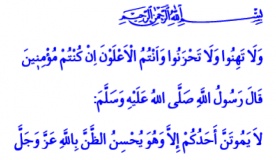 بِسْمِ اللَّهِ الرَّحْمَنِ الرَّحِيمِ
وَلَا تَهِنُوا وَلَا تَحْزَنُوا وَاَنْتُمُ الْاَعْلَوْنَ اِنْ كُنْتُمْ مُؤْمِنِينَ
قَالَ رَسُولُ اللَّهِ صَلَّى اللَّهُ عَلَيْهِ وَسَلَّمَ:
لاَ يَمُوتَنَّ أَحَدُكُمْ إِلاَّ وَهُوَ يُحْسِنُ الظَّنَّ بِاللَّهِ عَزَّ وَجَلَّ